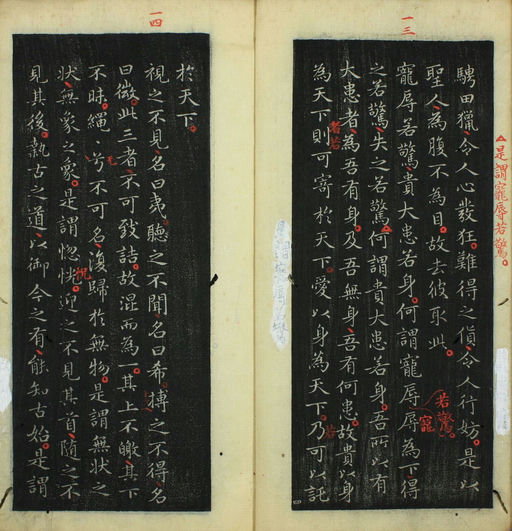 一三
△是謂寵辱若驚。
騁田獵令人心發狂難得之貨令人行妨是以
聖人為腹不為目故去彼取此
寵辱若驚貴大患若身何謂寵辱辱為下得
若驚。
寵
之若驚失之若驚何謂貴大患若身吾所以有
大患者為吾有身及吾無身吾有何患故貴以身
者若
為天下則可寄於天下愛以身為天下乃可以託
若
一四
於天下
視之不見名曰夷聽之不聞名曰希搏之不得名
曰微此三者不可致詰故混而為一其上不皦其下
不昧繩兮不可名復歸於無物是謂無狀之
狀無象之象是謂惚恍迎之不見其首隨之不
見其後執古之道以御今之有能知古始是謂